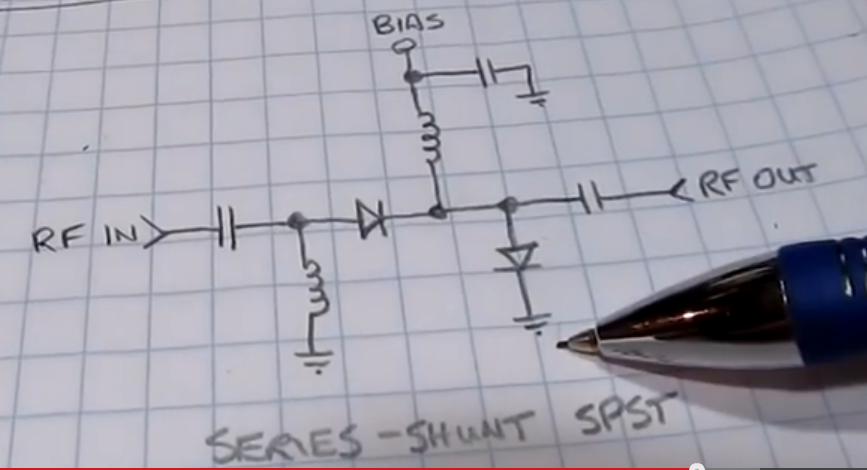 BIAS
RF IN
RF OUT
SERIES - SHUNT SPST